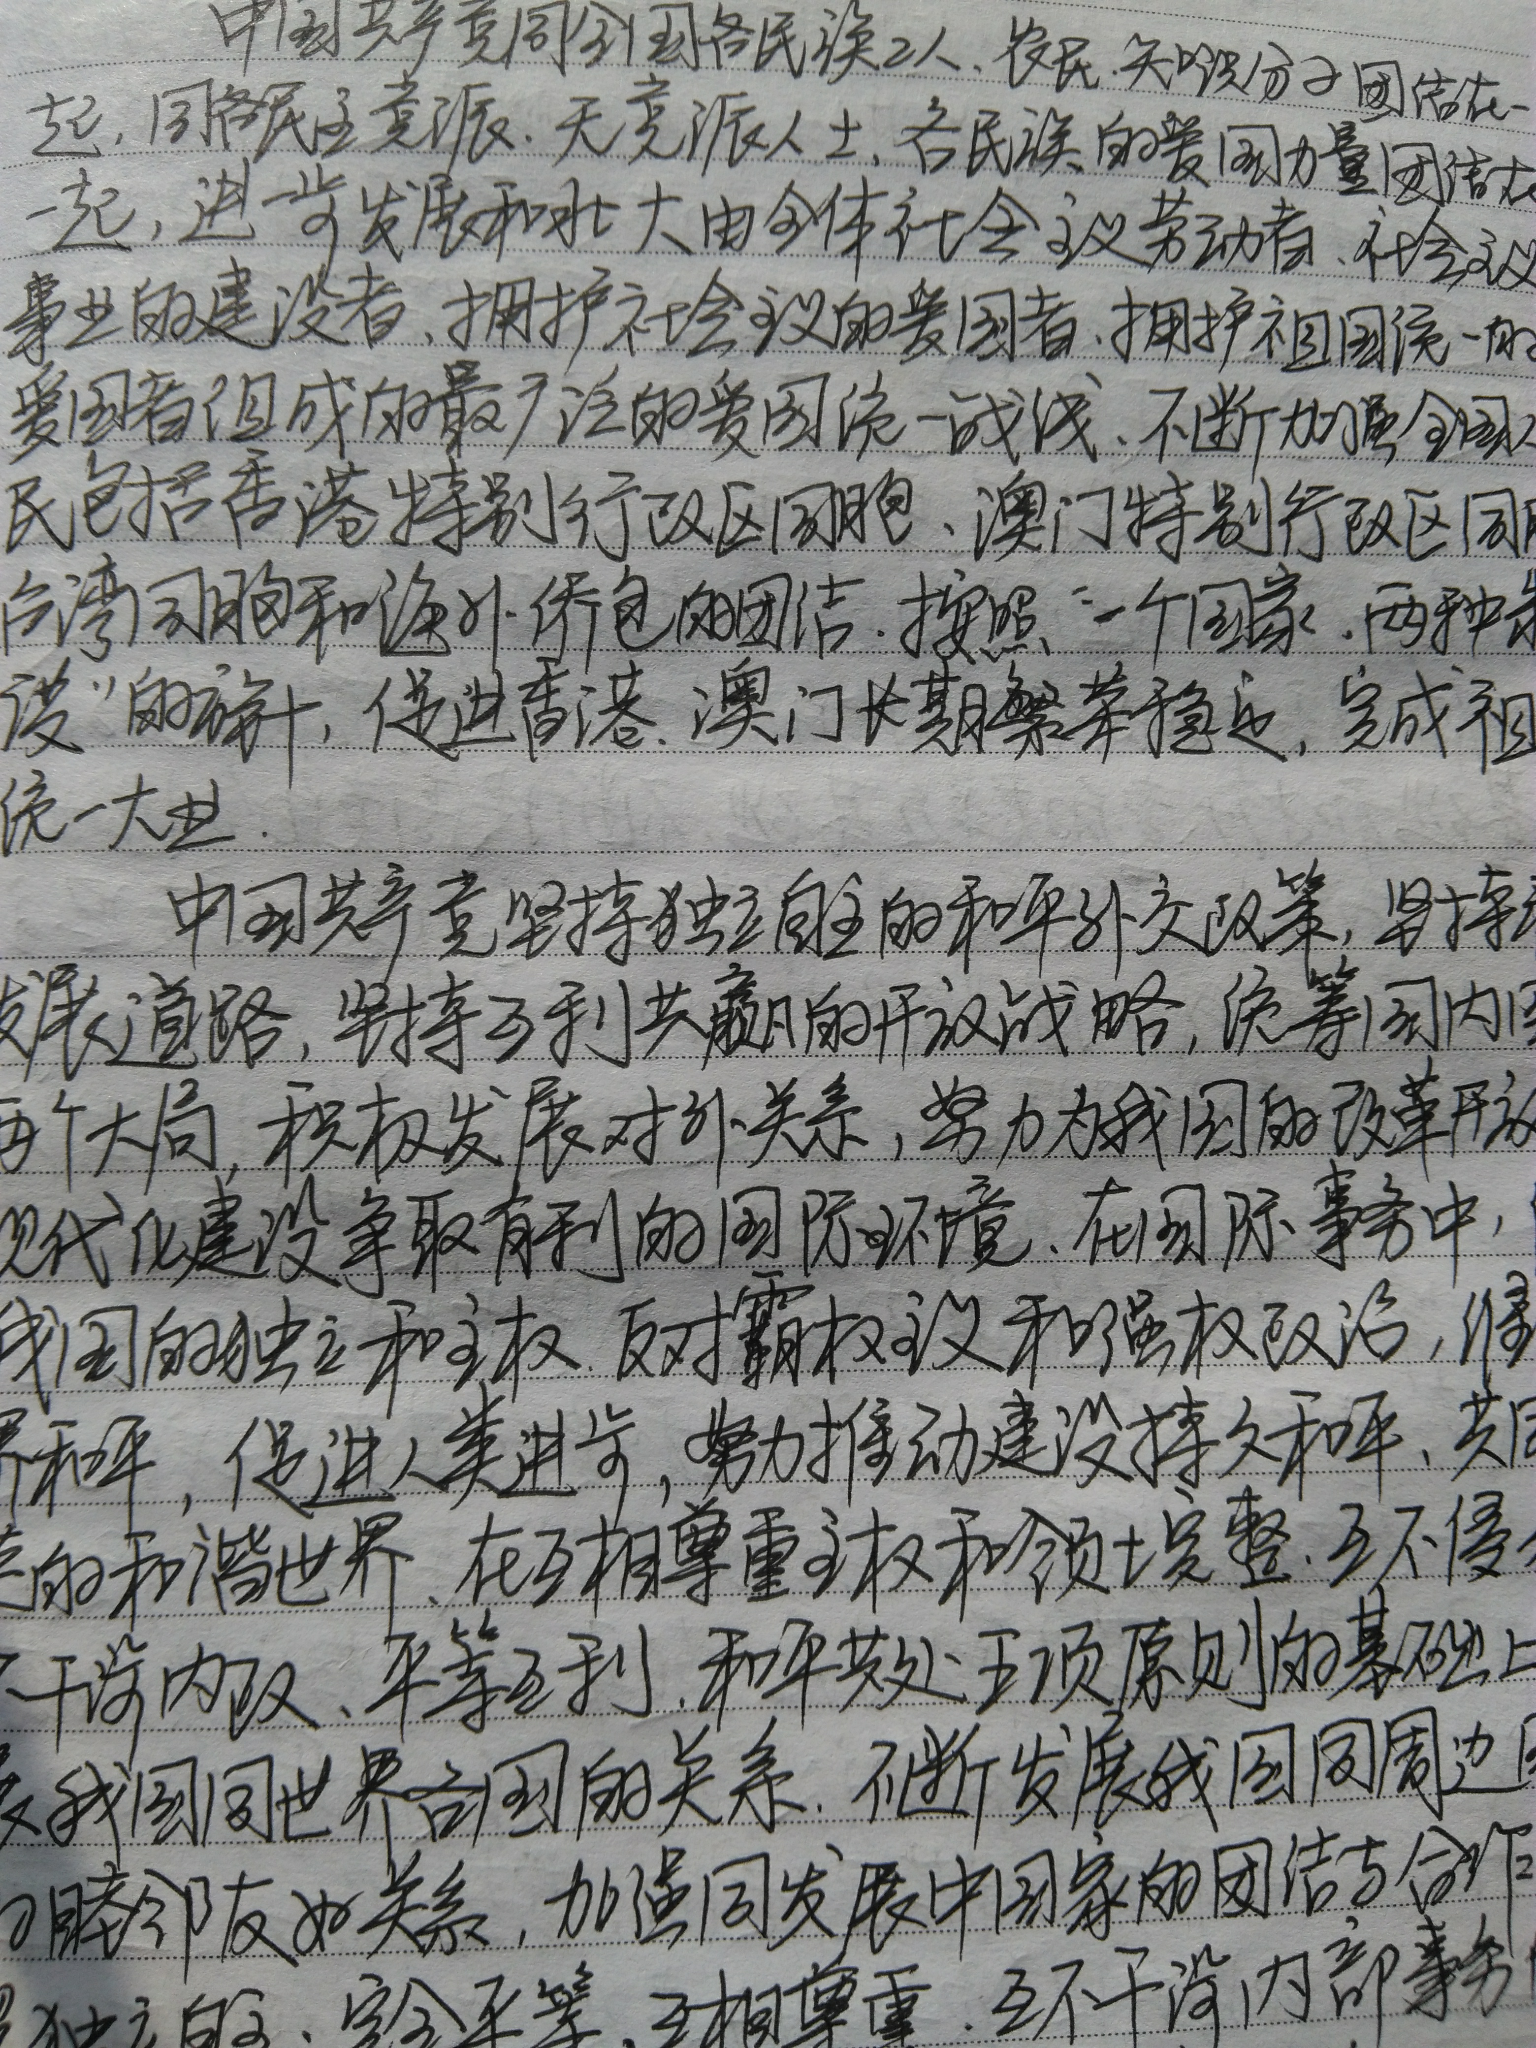 中国共产党同全国各民族工人、农民、知识分子团结在一
起，同各民主党派、无党派人士、各民族的爱国力量团结在
一起，进一步发展和壮大由全体社会主义劳动者、社会主义
事业的建设者、拥护社会主义的爱国者、拥护祖国统一的
爱国者组成的最广泛的爱国统一战线、不断加强全国人
民包括香港特别行政区同胞、澳门特别行政区同胞
台湾同胞和海外侨包的团洁.按照“一个国家、两种制
度”的方针，促进香港、澳门长期繁荣稳定，完成祖
统一大业.
中国共产党坚持独立自主的和平外交政策，坚持和
发展道路，坚持互利共赢的开放战略，统筹国内国
两个大局，积极发展对外关系，努力为我国的改革开放
现代化建设争取有利的国际环境、在国际事务中，
我国的独立和主权.反对霸权主义和强权政治，维
界和平，促进人类进步，努力推动建设持久和平、共同
荣的和谐世界、在互相尊重主权和领土完整、互不侵
不干涉内政、平等互利、和平共处五项原则的基础上
发我国同世界各国的关系.不断发展我国同周边国
的睦邻友好关系，加强同发展中国家的团洁与合作
照独立自主、完全平等、互相尊重、互不干涉内部事务